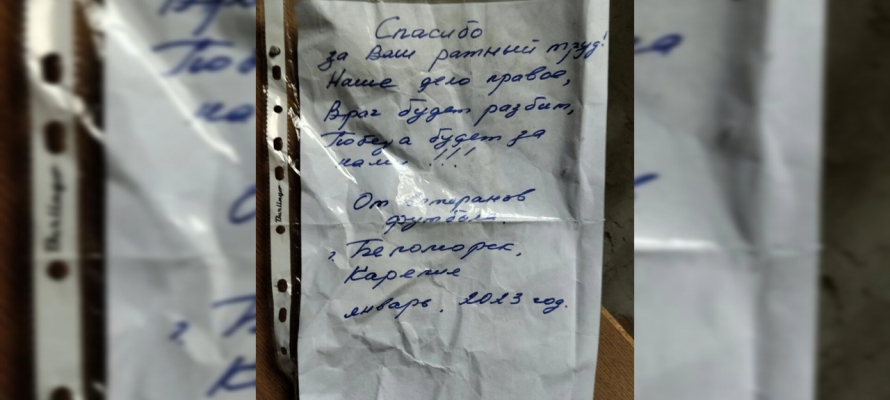 Спасибо
за Ваш ратный труд!
Наше дело правое,
Враг будет разбит,
Победа будет за
нами !!!
От ветеранов
футбола.
г. Беломорск,
Карелия
январь, 2023 год.